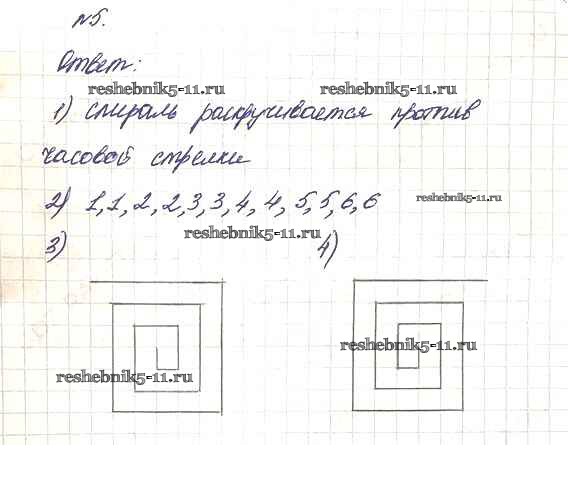 №5.
Ответ:
reshebnik5-11.ru reshebnik5-11.ru
1) спираль раскручивается против
часовой стрелки
2) 1, 1, 2, 2, 3, 3, 4, 4, 5, 5, 6, 6 reshebnik5-11.ru
reshebnik5-11.ru
3) 4)
reshebnik5-11.ru
reshebnik5-11.ru